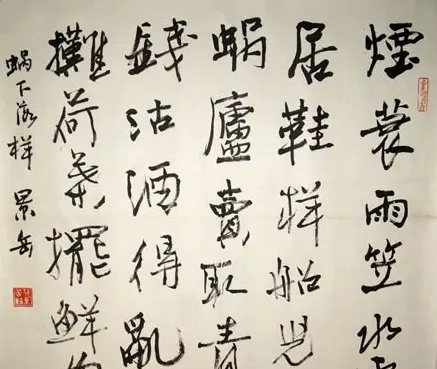 煙蓑雨笠水
居鞋样船兒
蝸廬賣取青
錢沽酒得亂
攤荷葉擺鮮
蝸下落样 景岳